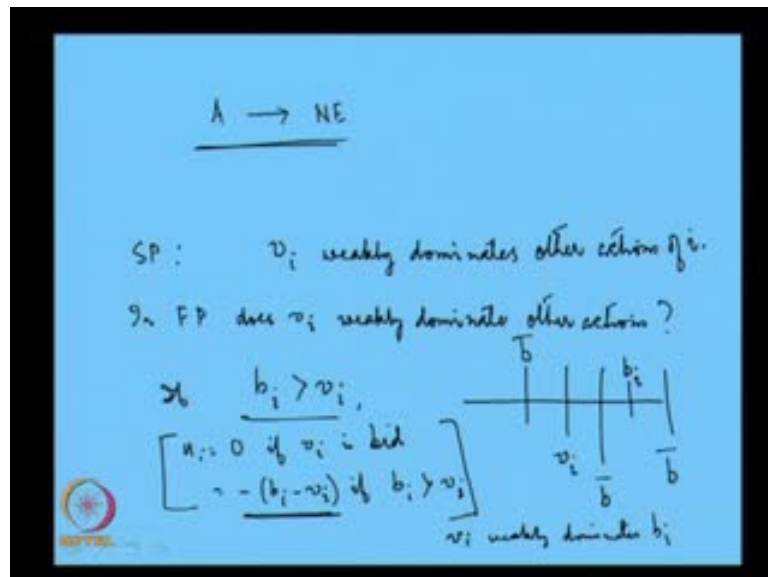 A → NE
SP : v_i weakly dominates other actions of i.
In FP does v_i weakly dominate other actions ?
If b_i > v_i,
u_i = 0 if v_i is bid
= -(b_i - v_i) if b_i > v_i
b̄
b_i
v_i
b̄
b̄
v_i weakly dominates b_i